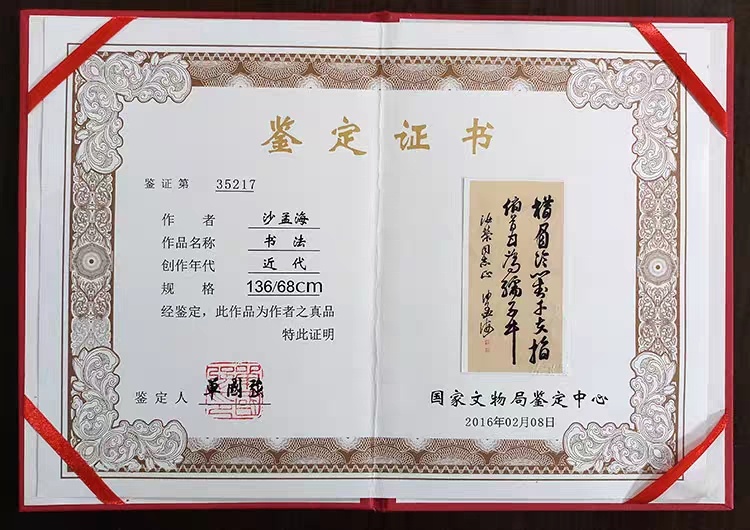 鉴定证书
鉴证第 35217
作者 沙孟海
作品名称 书法
创作年代 近代
规格 136/68cm
经鉴定，此作品为作者之真品
特此证明
鉴定人 单国强
横眉冷对千夫指
俯首甘为孺子牛
汝棠同志正 沙孟海
国家文物局鉴定中心
2016年02月08日